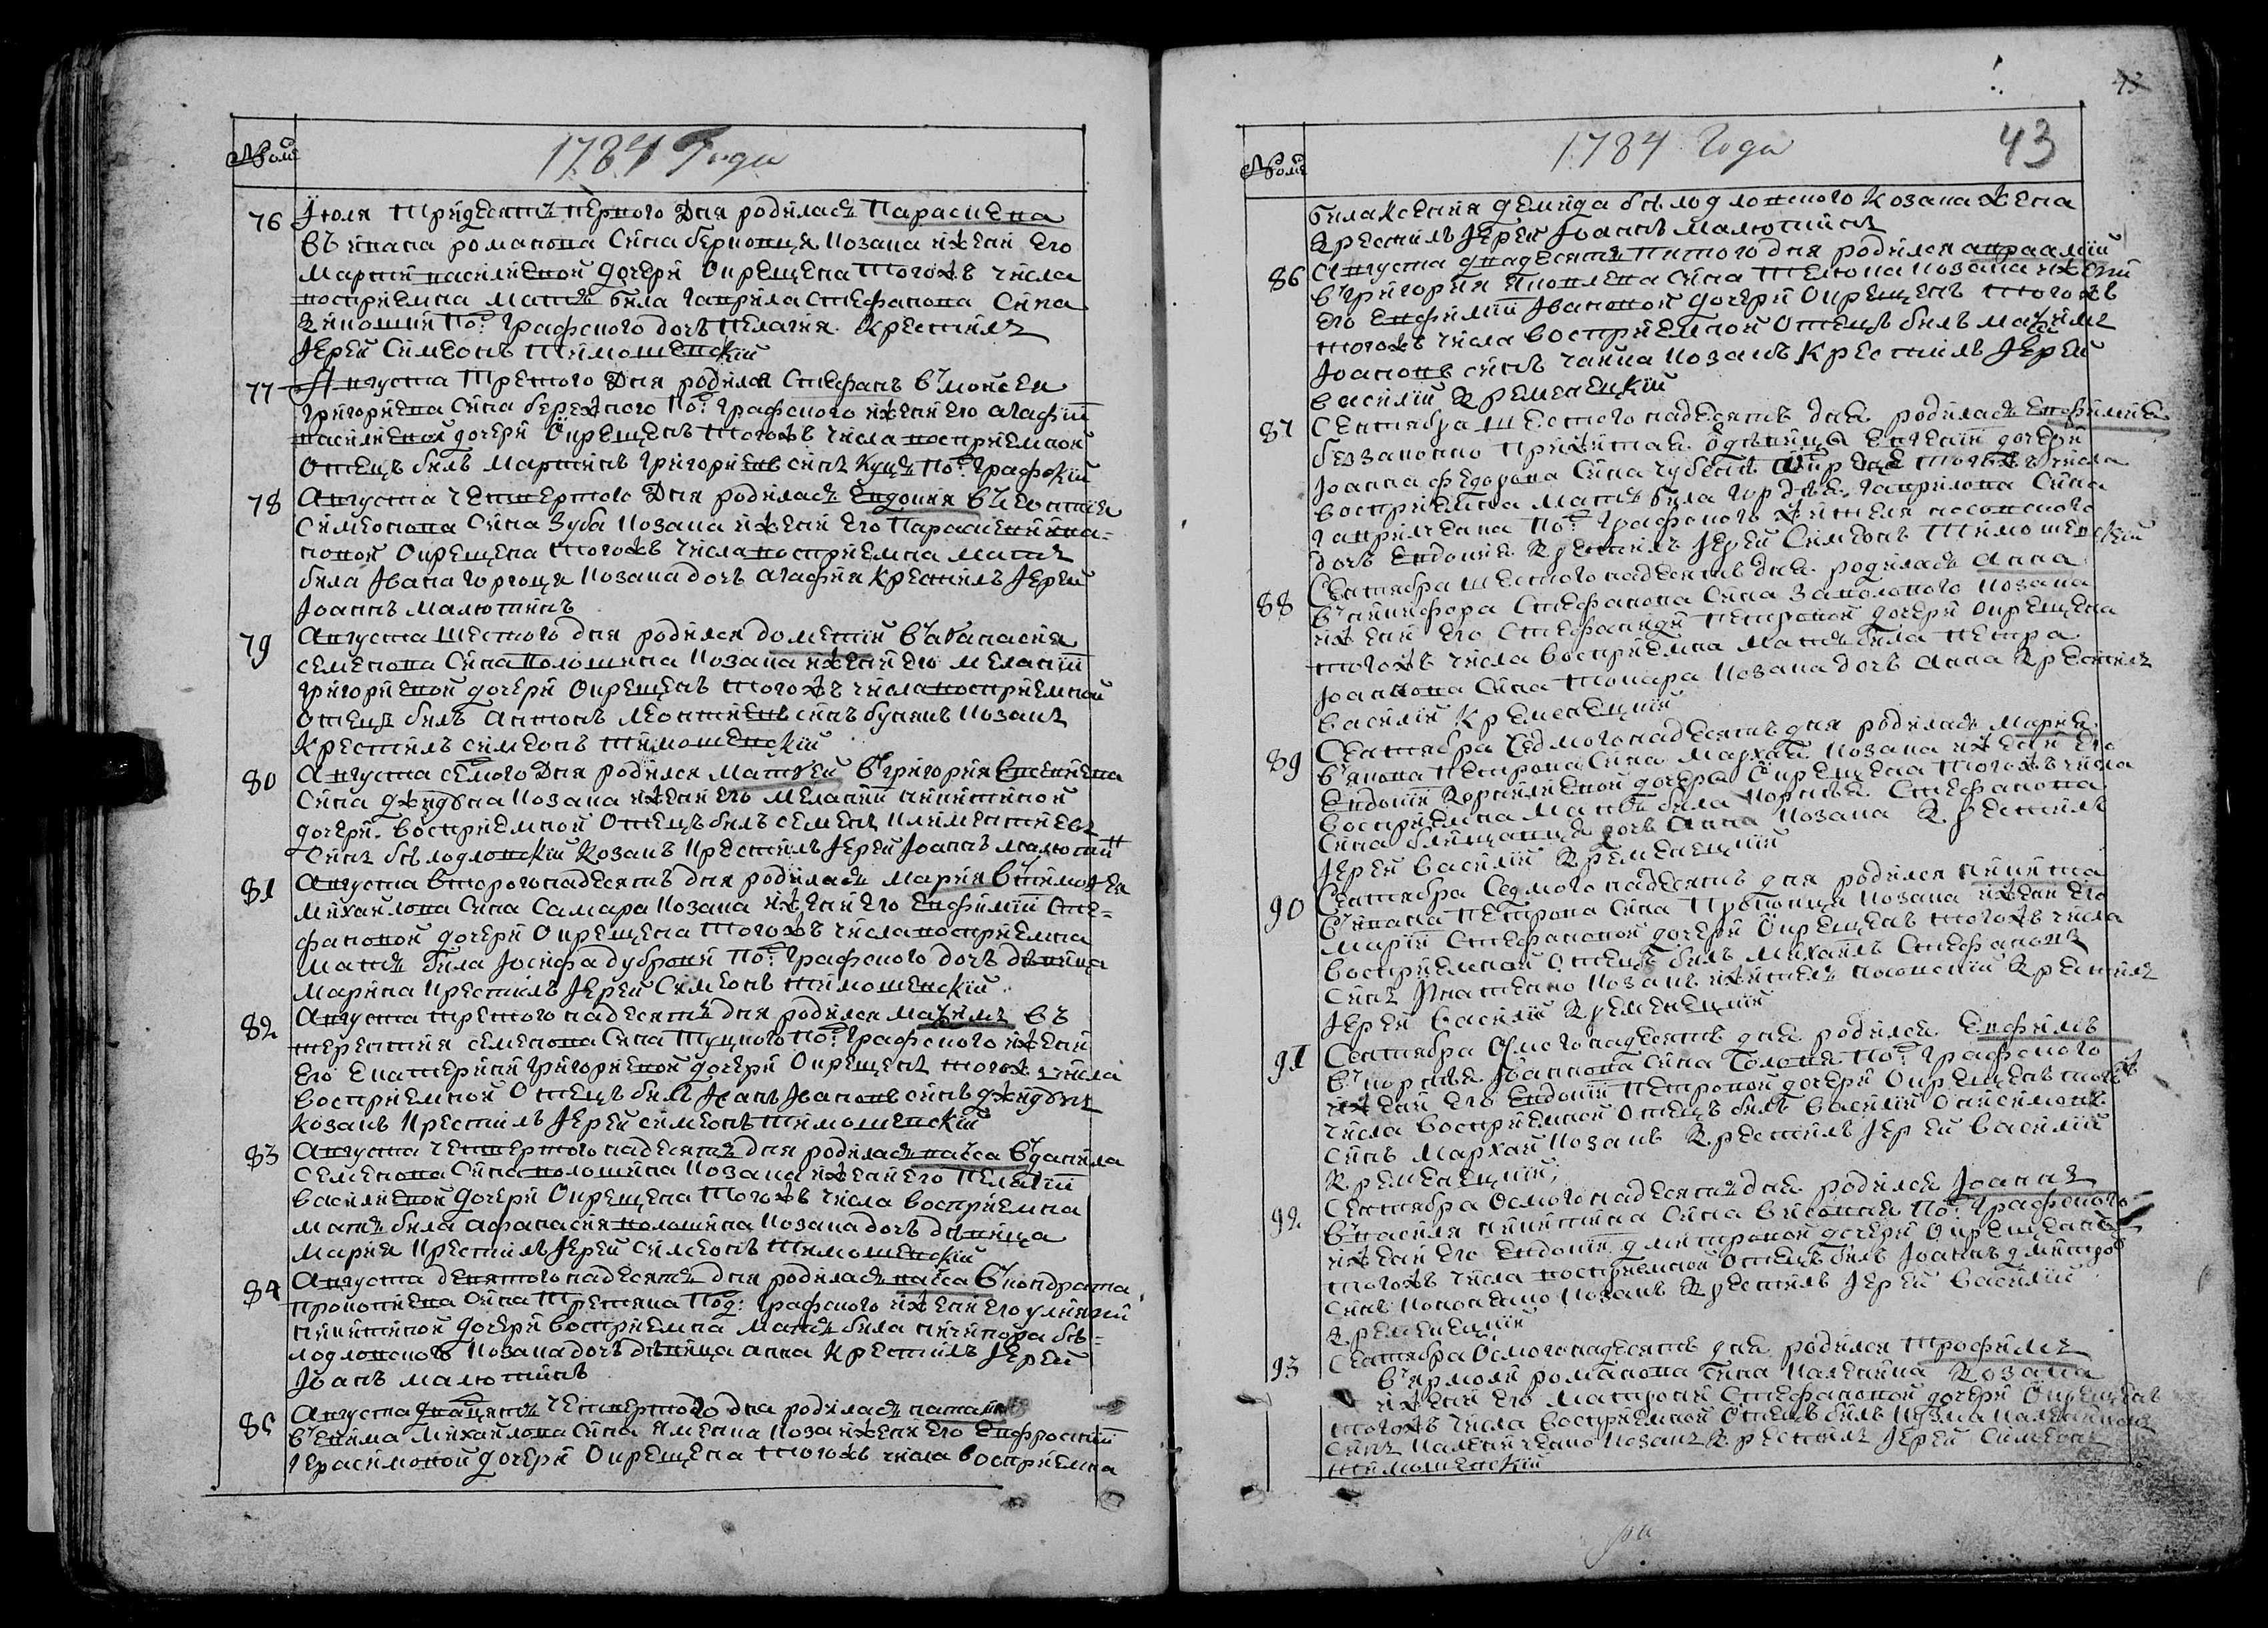 Номѣ
1784 Года
76 Іюля тридесять первого дня родилась Параскева
въ Ивана романова сина берковця козака и жени его
Марѝи василиевой дочери Окрещена того жъ числа
восприемна мать била гаврила Стефанова Сина
подд: Графского дочь Пелагия. Крестилъ
Іерей Симеонъ Тимошевскїй
77 Августа Третого дня родился Стефанъ в мойсея
григориева Сина бережного под: Графского и жени его агафїи
василиевой дочери Окрещенъ того жъ числа восприемной
Отецъ билъ Мартинъ григориевъ синъ Куцъ под: Графскїй
78 Августа четвертого дня родилась Евдокия в Леонтия
Симеонова Сина Зуба козака и жени его Параскеви ива-
новой Окрещена того жъ числа восприемна мать
била Івана горгоця козака дочь агафия крестилъ Іерей
Іоаннъ Малютинъ
79 Августа шестого дня родился дометїй в афанасия
семенова Сина волошина козака и жени его меланїи
григориевой дочери Окрещенъ того жъ числа восприемной
Отецъ билъ антонъ леонтиевъ синъ козакъ
Крестилъ симеонъ тимошевскїй
80 Августа семого дня родился Матфей в григория Евсеиева
Сина джидбна козака и жени его меланїи никитиной
дочери. восприемной Отецъ билъ семенъ климентиевъ
Синъ бѣлодловскїй козакъ крестилъ Іерей Іоаннъ малютин
81 Августа второго надесять дня родилась Мария в тимофея
Михайлова Сина Самара козака и жени его Евфимїи Сте-
фановой дочери Окрещена того жъ числа восприемна
мать била Іосифа дуброви под: Графского дочь дѣвица
Марина крестилъ Іерей Симеонъ тимошевскїй
82 Августа третого надесять дня родился Маѯимъ въ
терентия семенова Сина Туцкого под: Графского и жени
его Екатерини григориевой дочери Окрещенъ того жъ числа
восприемной Отецъ билъ Іванъ Івановъ синъ джидбнъ
козакъ крестилъ Іерей симеонъ тимошевскїй
83 Августа четвертого надесять дня родилась васса в данила
Семенова Сина волошина козака и жени его Пелагїи
василиевой дочери Окрещена того жъ числа восприемна
мать била афанасия волошина козака дочь дѣвица
Мария крестилъ Іерей Симеонъ тимошевскїй
84 Августа девятого надесять дня родилась васса в кондрата
прокопиева Сина Третяка под: Графского и жени его улияни
никитиной дочери восприемна мать била ничипора бѣ-
лодловского козака дочь дѣвица анна крестилъ Іерей
Іоанъ малютинъ
85 Августа двадцять четвертого дна родилась наталия
в Екима Михайлова Сина козака и жени его Евфросинїи
герасимовой дочери Окрещена того жъ числа восприемна
43
Номѣ
1784 года
43
била Ксения демида бѣлодловского козака жена
крестилъ Іерей Іоаннъ малютинъ
86 Августа двадесять пятого дня родился авраамїй
в григория яковлева сина козака и жени
его Евфимїи Івановой дочери Окрещенъ того жъ
того жъ числа восприемной отецъ билъ маѯимъ
Іоановъ синъ чайка козакъ крестилъ Іерей
василїй кременецкїй
87 Септября шестого надесять дня родилась Евфимия
беззаконно прижитая вдовици Евгенїи дочери
Іоанна федорова Сина того жъ числа
восприемна мать била гаврилова Сина
под: Графского жителя
дочь Евдокия крестилъ Іерей Симеонъ Тимошевскїй
88 Септября шестого надесять дня родилась анна
в никифора Стефанова Сина Заполоного козака
и жени его Стефаниди петровой дочери окрещена
того жъ числа восприемна мать била петра
Іоаннова Сина токара козака дочь анна крестилъ
василїй кременецкїй
89 Септября Седмого надесять дня родилась Мария
в якова петрова Сина Мархая козака и жени его
Евдокїи корнилиевой дочери Окрещена того жъ числа
восприемна мать била корнѣя Стефанова
Сина дочь анна козака крестилъ
Іерей василїй кременецкїй
90 Септября Седмого надесять дня родился никита
в ивана петрова Сина козака и жени его
Марїи Стефановой дочери Окрещенъ того жъ числа
восприемной Отецъ билъ Михаилъ Стефановъ
Синъ Игнатенко козакъ крестилъ
Іерей василїй кременецкїй
91 Септября Осмого надесять дня родился Евфимъ
в корнѣя Іваннова Сина Головя под: Графского
и жени его Евдокїи петровой дочери Окрещенъ того жъ
числа восприемной Отецъ билъ василїй Онисимовъ
синъ Мархай козакъ крестилъ Іерей василїй
кременецкїй
92 Септября Осмого надесять дня родился Іоаннъ
в василя никитина Сина под: Графского
и жени его Евдокїи дмитровой дочери Окрещенъ
того жъ числа восприемной Отецъ билъ Іоаннъ дмитров
синъ Кононенко козакъ крестилъ Іерей василїй
кременецкїй
93 Септября Осмого надесять дня родился Трофимъ
в ярмоли романова Сина Каленика козака
и жени его Матрони Стефановой дочери Окрещенъ
того жъ числа восприемной Отецъ билъ кузма
синъ Калениченко козакъ крестилъ Іерей Симеонъ
тимошевскїй